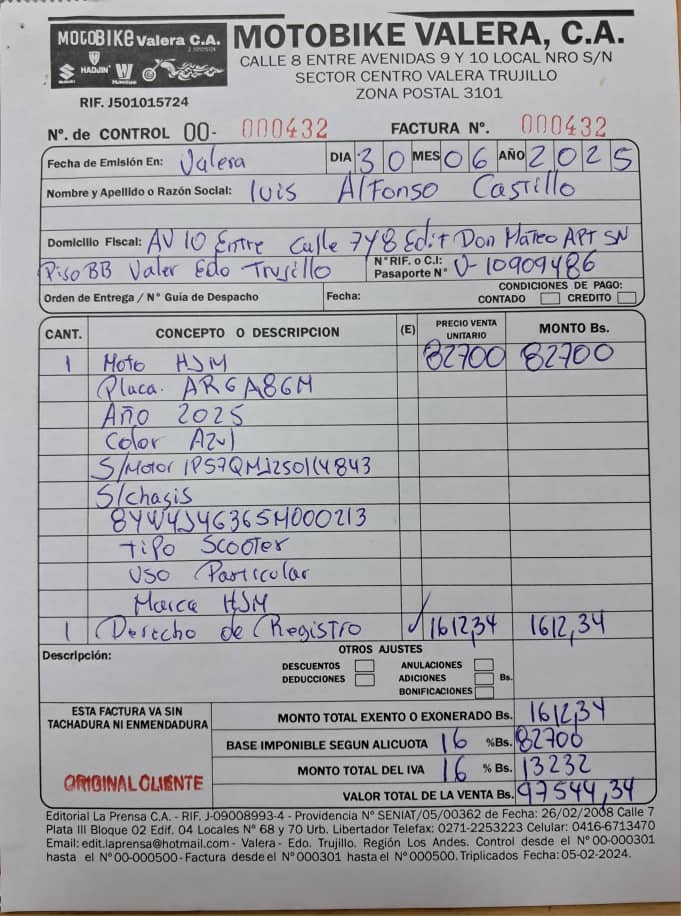 MOTOBIKE Valera C.A.
SUZUKI HAOJIN
RIF. J501015724
MOTOBIKE VALERA, C.A.
CALLE 8 ENTRE AVENIDAS 9 Y 10 LOCAL NRO S/N
SECTOR CENTRO VALERA TRUJILLO
ZONA POSTAL 3101
Nº. de CONTROL 00- 000432 FACTURA Nº. 000432
Fecha de Emisión En: Valera DIA 30 MES 06 AÑO 2025
Nombre y Apellido o Razón Social: luis Alfonso Castillo
Domicilio Fiscal: AV 10 Entre Calle 7 y 8 Edif Don Mateo APT SN
Piso BB Valer Edo Trujillo N° RIF. o C.I: Pasaporte N° V-10909486
Orden de Entrega / N° Guía de Despacho Fecha: CONDICIONES DE PAGO: CONTADO CREDITO
CANT. CONCEPTO O DESCRIPCION (E) PRECIO VENTA UNITARIO MONTO Bs.
1 Moto HJM 82700 82700
Placa. AR6A86M
Año 2025
Color Azul
S/Motor 1P57QMJ2501K4843
S/chasis
8YW4J4G36SM000213
Tipo Scooter
Uso Particular
Marca HJM
1 Derecho de Registro ✓ 1612,34 1612,34
Descripción: OTROS AJUSTES
DESCUENTOS ANULACIONES
DEDUCCIONES ADICIONES Bs.
BONIFICACIONES
ESTA FACTURA VA SIN TACHADURA NI ENMENDADURA
ORIGINAL CLIENTE
MONTO TOTAL EXENTO O EXONERADO Bs. 1612,34
BASE IMPONIBLE SEGUN ALICUOTA 16 %Bs. 82700
MONTO TOTAL DEL IVA 16 % Bs. 13232
VALOR TOTAL DE LA VENTA Bs. 97544,34
Editorial La Prensa C.A. - RIF. J-09008993-4 - Providencia N° SENIAT/05/00362 de Fecha: 26/02/2008 Calle 7
Plata III Bloque 02 Edif. 04 Locales N° 68 y 70 Urb. Libertador Telefax: 0271-2253223 Celular: 0416-6713470
Email: edit.laprensa@hotmail.com - Valera - Edo. Trujillo. Región Los Andes. Control desde el N° 00-000301
hasta el N° 00-000500 - Factura desde el N° 000301 hasta el N° 000500. Triplicados Fecha: 05-02-2024.